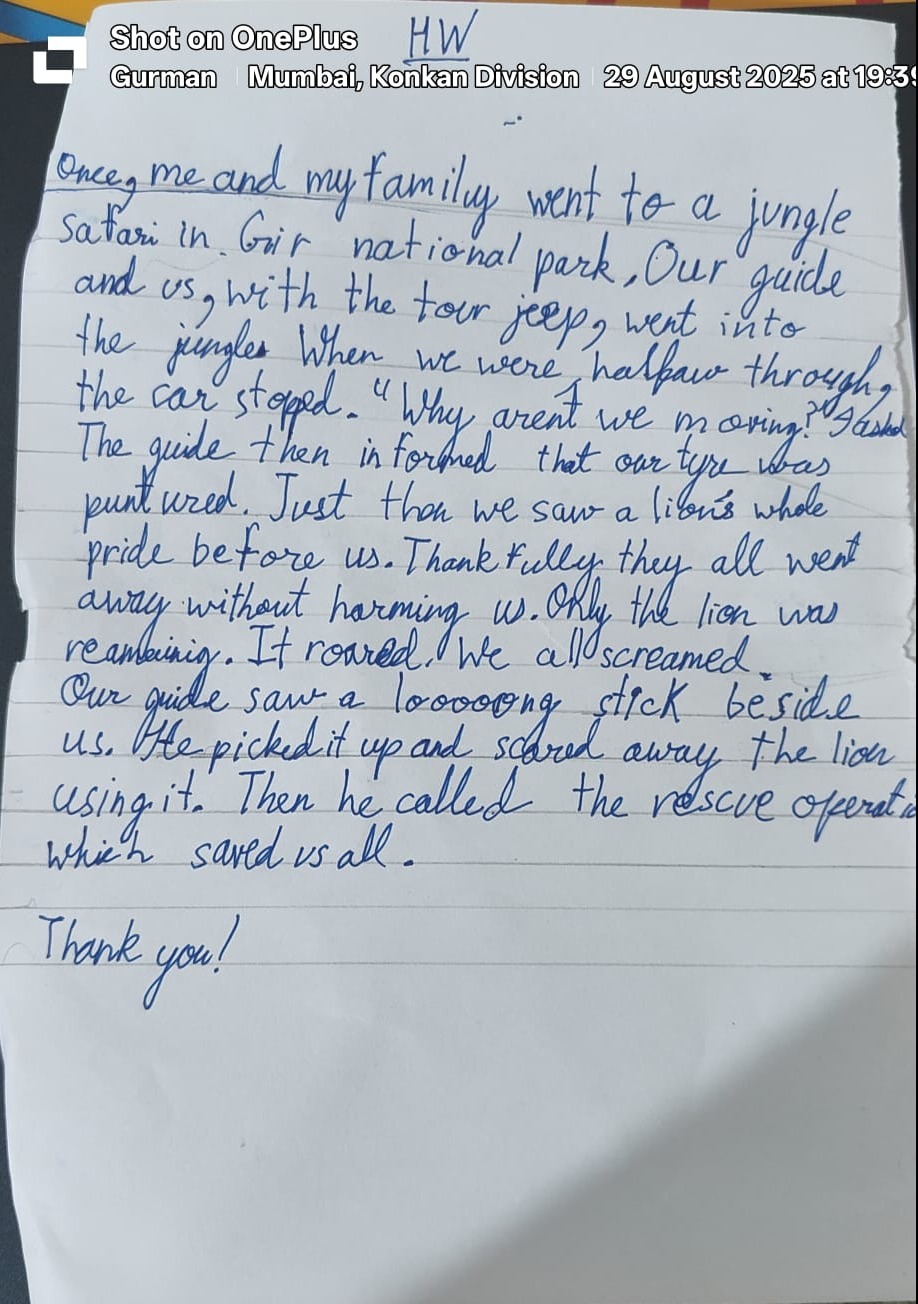 Shot on OnePlus
Gurman | Mumbai, Konkan Division | 29 August 2025 at 19:39
HW
Once, me and my family went to a jungle
safari in Gir national park. Our guide
and us, with the tour jeep, went into
the jungle. When we were halfaw through,
the car stopped. "Why aren't we moving?" I asked
The guide then informed that our tyre was
puntured. Just then we saw a lion's whole
pride before us. Thankfully they all went
away without harming us. Only the lion was
reamainig. It roared. We all screamed.
Our guide saw a looooong stick beside
us. He picked it up and scared away the lion
using it. Then he called the rescue operatio
which saved us all.
Thank you!